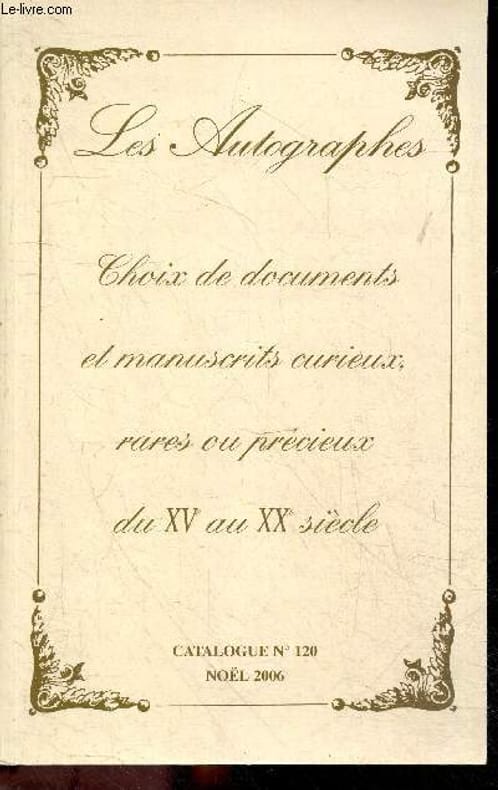 Le-livre.com
Les Autographes
Choix de documents
et manuscrits curieux,
rares ou précieux
du XVe au XXe siècle
CATALOGUE N° 120
NOËL 2006